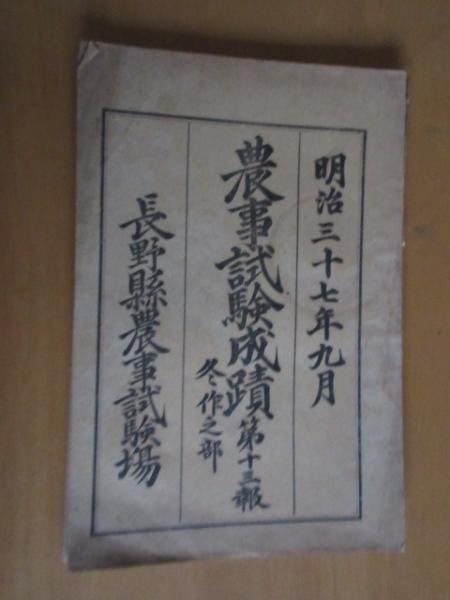 明治三十七年九月
農事試験成蹟第十三報
冬作之部
長野縣農事試験場